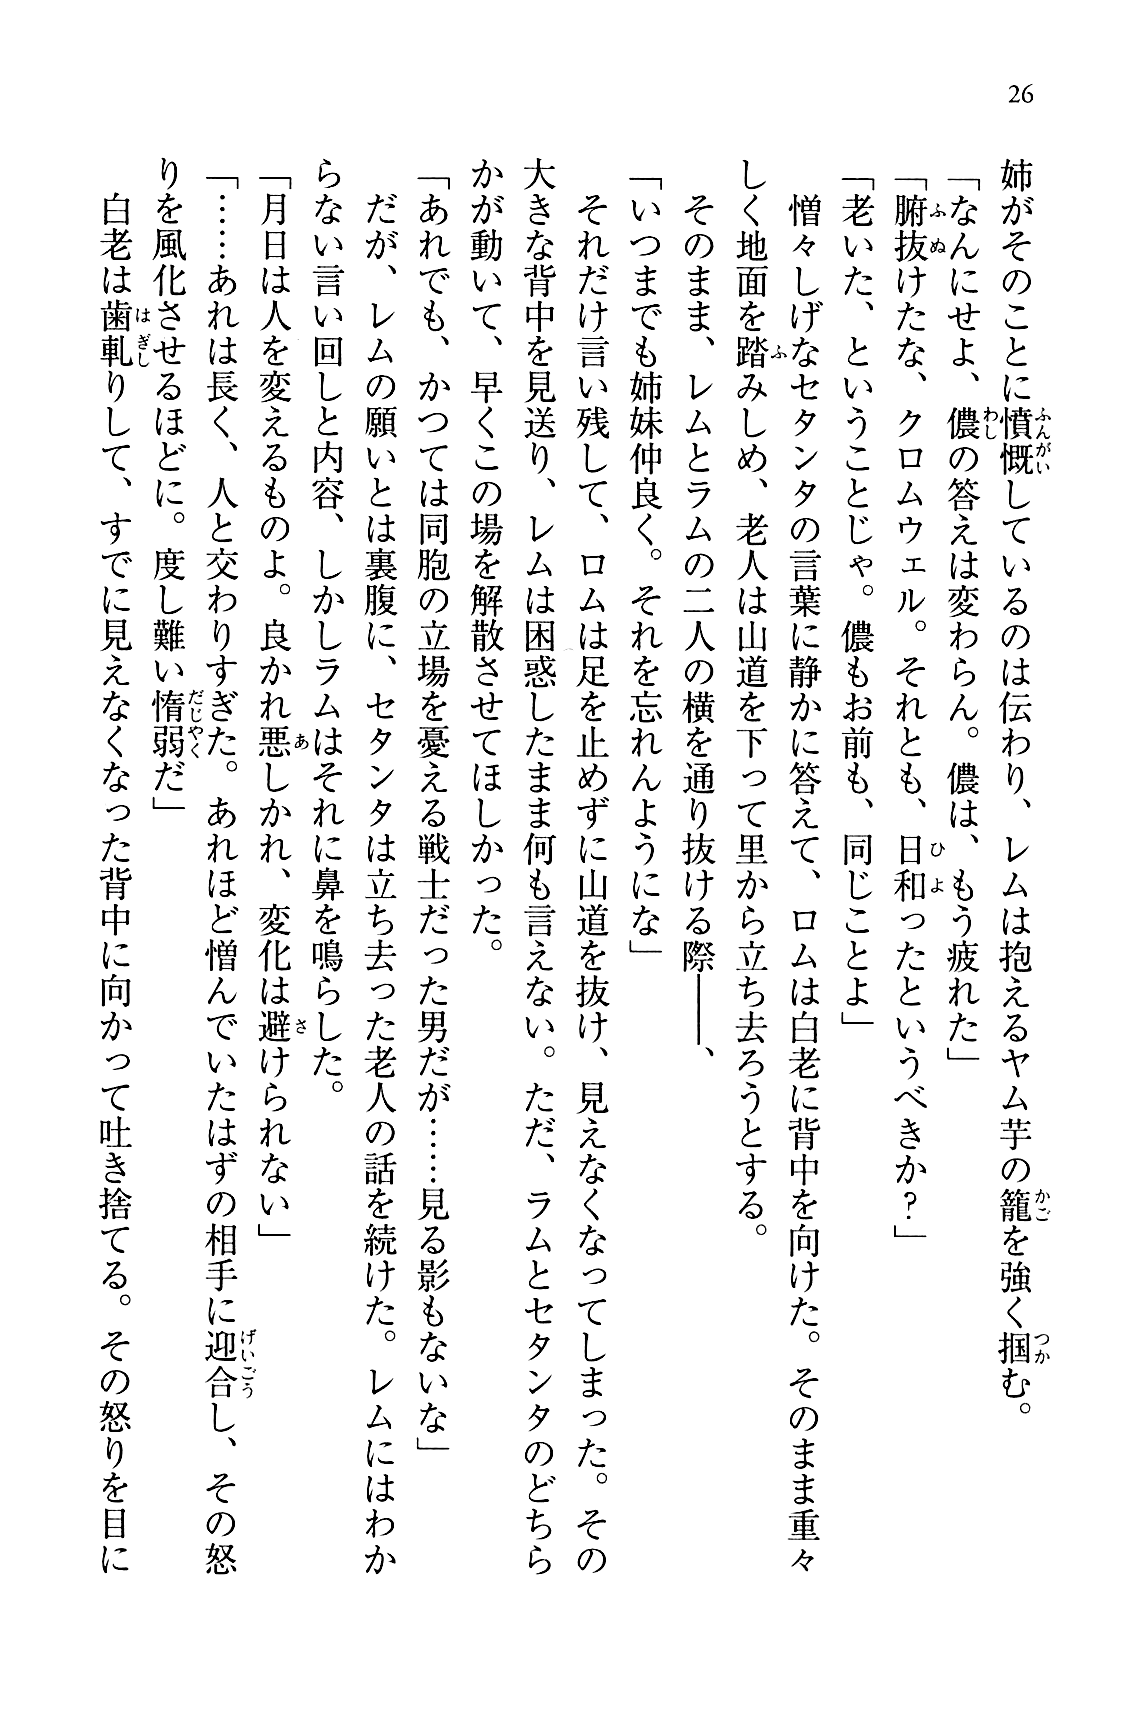 26
姉がそのことに憤慨しているのは伝わり、レムは抱えるヤム芋の籠を強く掴む。
「なんにせよ、儂の答えは変わらん。儂は、もう疲れた」
「腑抜けたな、クロムウェル。それとも、日和ったというべきか？」
「老いた、ということじゃ。儂もお前も、同じことよ」
憎々しげなセタンタの言葉に静かに答えて、ロムは白老に背中を向けた。そのまま重々
しく地面を踏みしめ、老人は山道を下って里から立ち去ろうとする。
そのまま、レムとラムの二人の横を通り抜ける際――、
「いつまでも姉妹仲良く。それを忘れんようにな」
それだけ言い残して、ロムは足を止めずに山道を抜け、見えなくなってしまった。その
大きな背中を見送り、レムは困惑したまま何も言えない。ただ、ラムとセタンタのどちら
かが動いて、早くこの場を解散させてほしかった。
「あれでも、かつては同胞の立場を憂える戦士だった男だが……見る影もないな」
だが、レムの願いとは裏腹に、セタンタは立ち去った老人の話を続けた。レムにはわか
らない言い回しと内容、しかしラムはそれに鼻を鳴らした。
「月日は人を変えるものよ。良かれ悪しかれ、変化は避けられない」
「……あれは長く、人と交わりすぎた。あれほど憎んでいたはずの相手に迎合し、その怒
りを風化させるほどに。度し難い惰弱だ」
白老は歯軋りして、すでに見えなくなった背中に向かって吐き捨てる。その怒りを目に